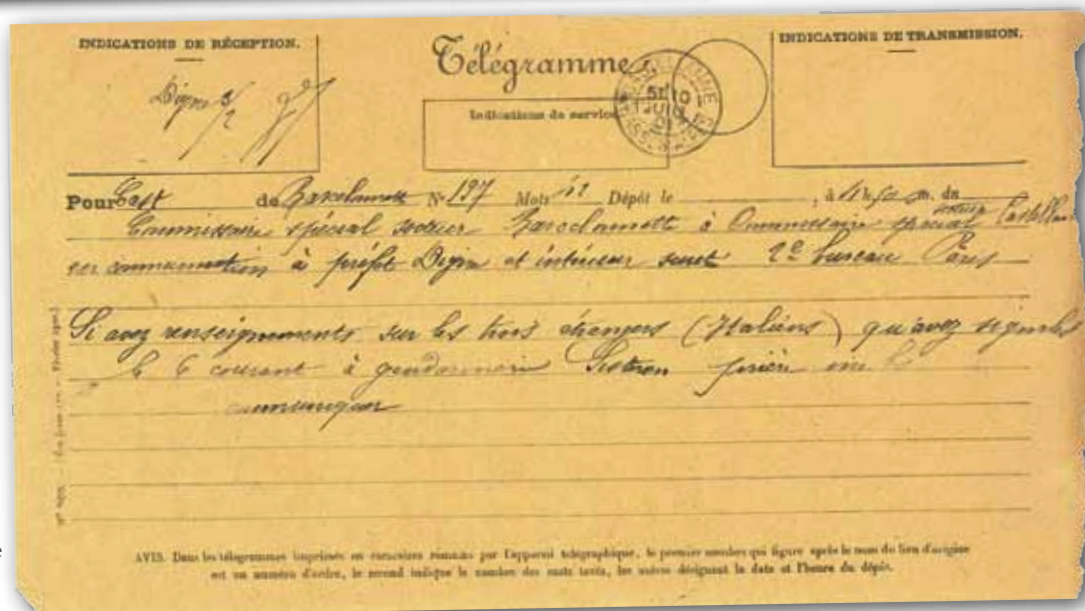 INDICATIONS DE RÉCEPTION.
Télégramme
INDICATIONS DE TRANSMISSION.
Digne
Indications de service
Pour Cast de Barcelonnette N° 197 Mots Dépôt le , à h m. du
Commissaire spécial secteur Barcelonnette à Commissaire spécial Castellane
communication à préfet Digne et intérieur sureté 2e bureau Paris
Si avez renseignements sur les trois étrangers (Italiens) qu'avez signalés
le 6 courant à gendarmerie Sisteron prière me les
communiquer
AVIS. Dans les télégrammes imprimés en caractères romains par l'appareil télégraphique, le premier nombre qui figure après le nom du lieu d'origine
est un numéro d'ordre, le second indique le nombre des mots taxés, les autres désignent la date et l'heure du dépôt.